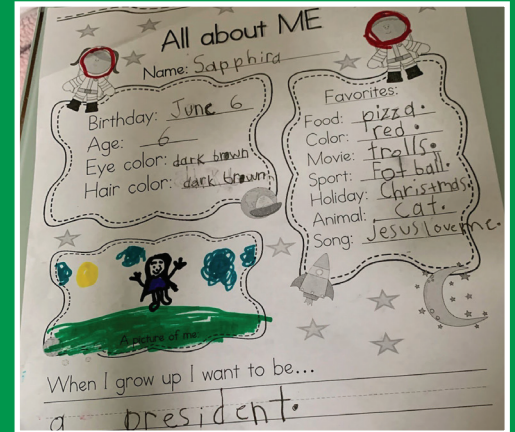 All about ME
Name: Sapphira
Birthday: June 6
Age: 6
Eye color: dark brown
Hair color: dark brown
A picture of me
Favorites:
Food: pizza.
Color: red.
Movie: trolls.
Sport: Fotball.
Holiday: Christmas.
Animal: Cat.
Song: Jesus loveme.
When I grow up I want to be...
a president.